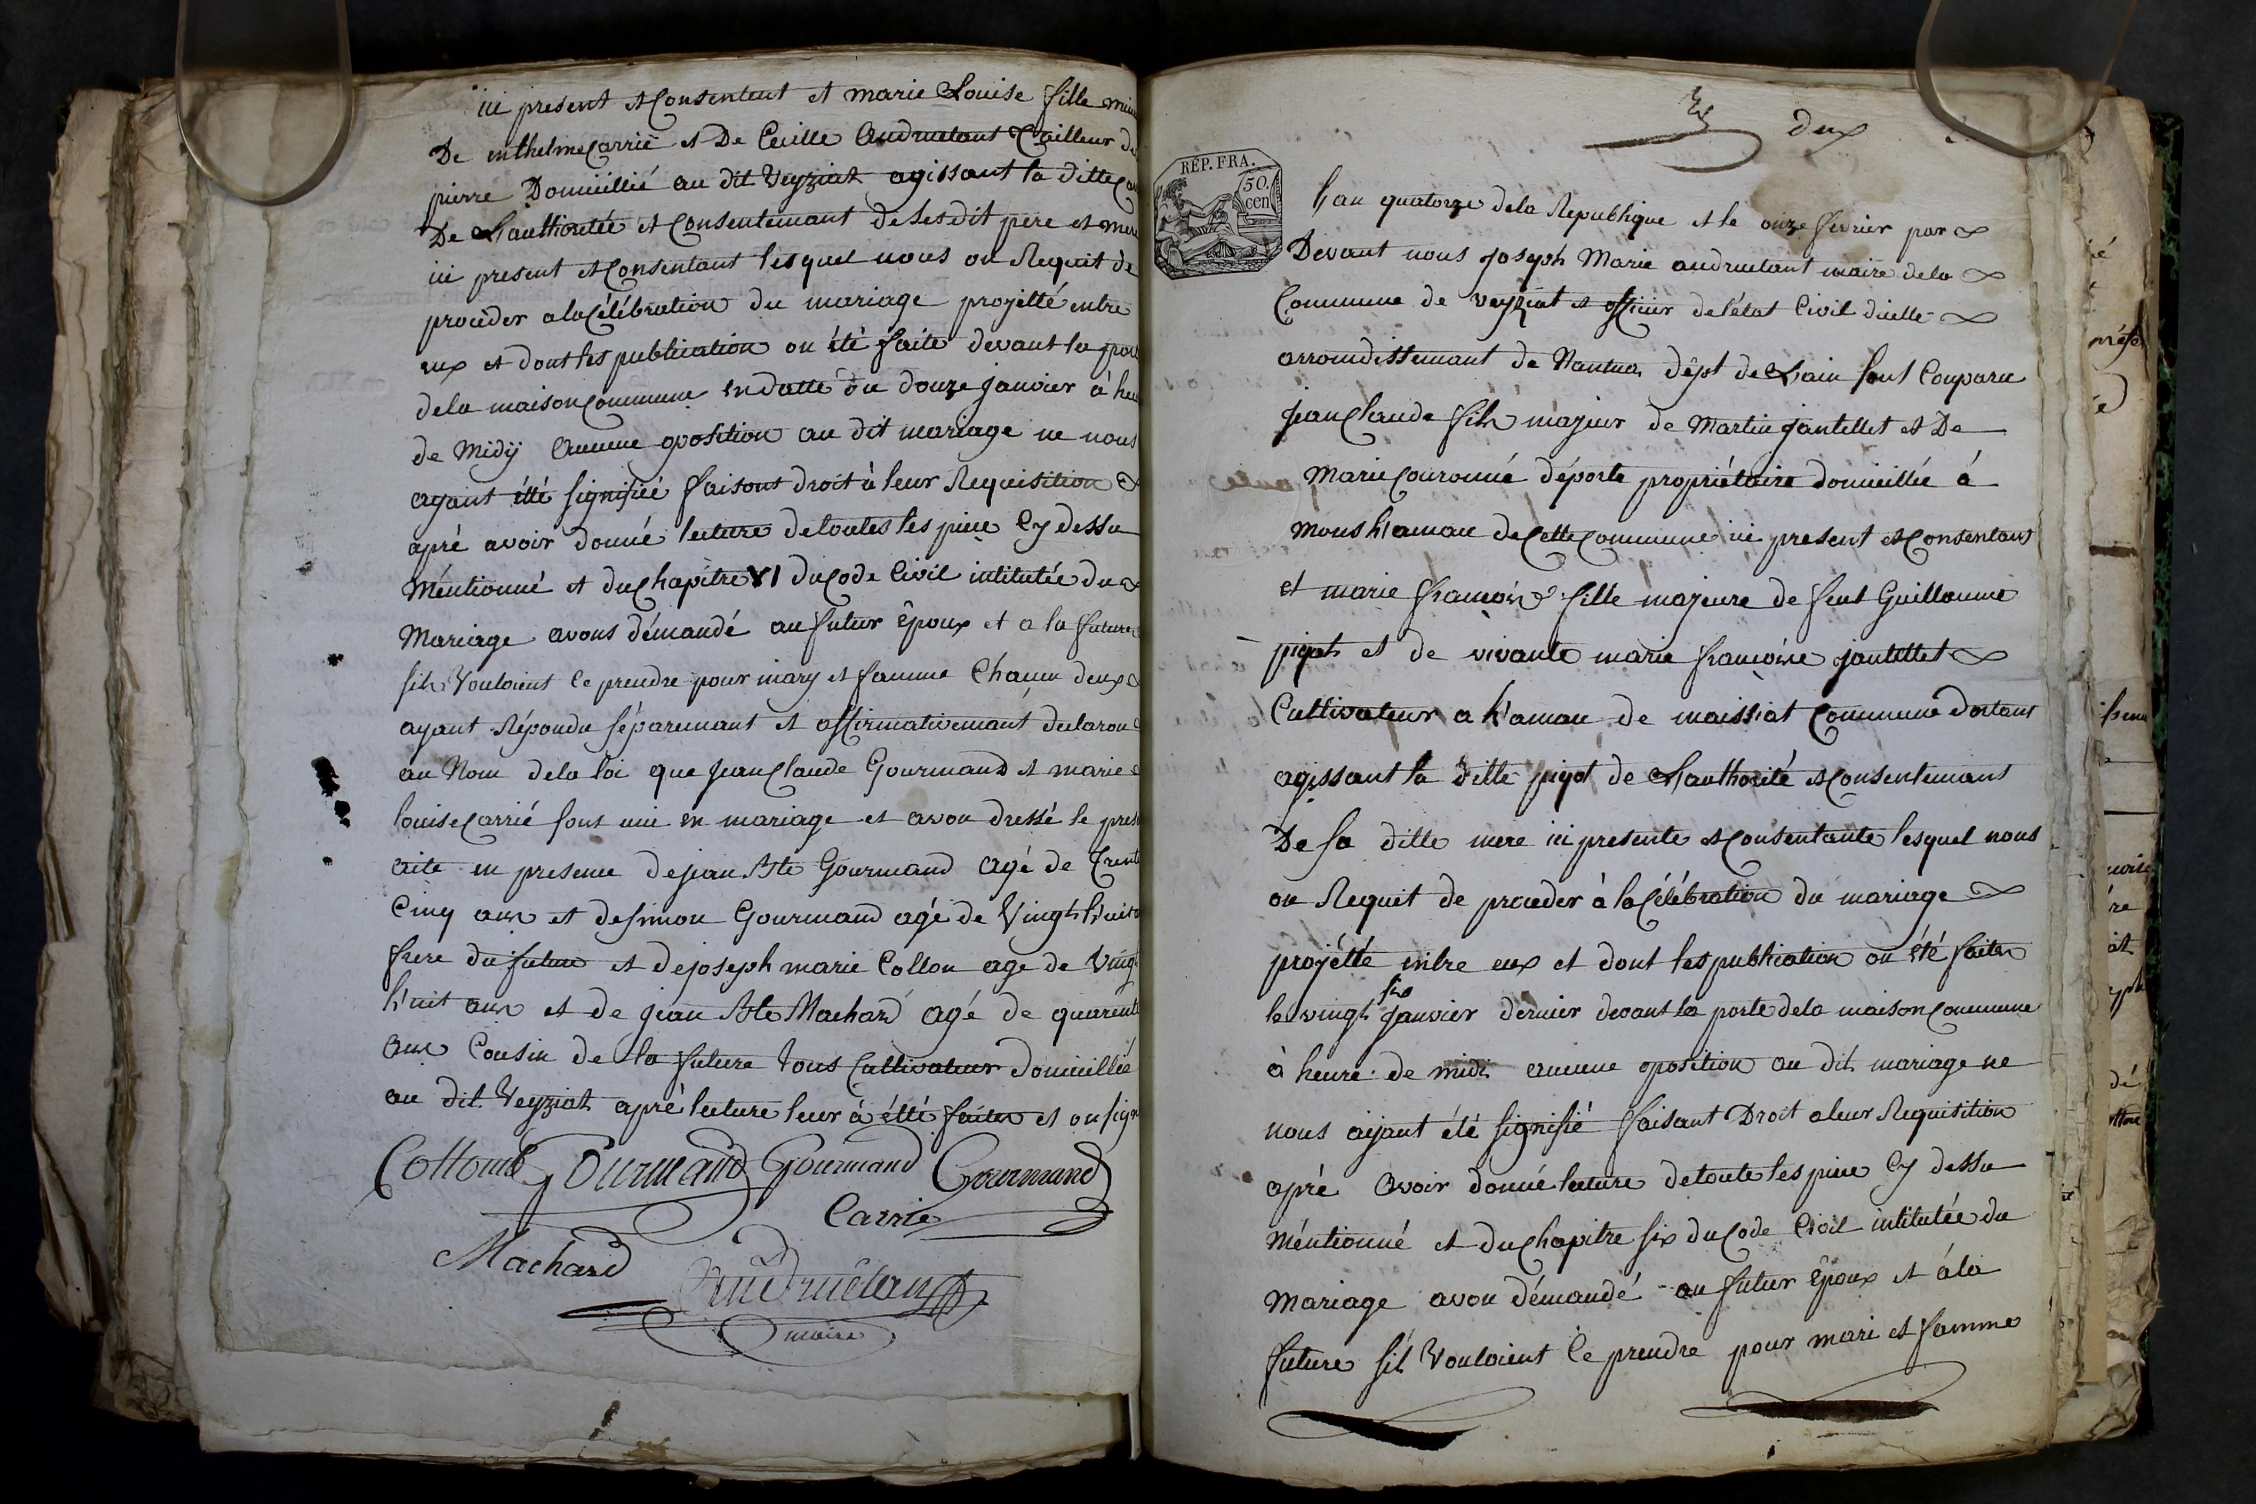 ici present et Consentent et marie Louise fille
De enthelme Carrié et De Cecille Andruetant Tailleur de
pierre Domicillié au dit Veyziat agissant la ditte
De L'authoritée et Consentemant de ses dit pere et mere
ici present et Consentant lesquel nous on Requit de
proceder a la Célébration du mariage projetté entre
eux et dont les publication on été faite devant la porte
de la maison Commune en datte du douze janvier à heure
de Midij aucune oposition au dit mariage ne nous
ayant étté signifiéé faisont droit à leur Requisition
apré avoir donné lecture de toutes les piece Cy dessu
Méntionné et du Chapitre VI du Code Civil intitutée du
Mariage avons démandé au futur Epoux et a la future
sils Vouloient Ce prendre pour mary et famme Chacun deux
ayant Répondu séparemant et affirmativemant declaron
au Nom de la loi que Jean Claude Gourmand et marie
louise Carrié sont uni en mariage et avon dressé le
acte en presence de jean Bte Gourmand agé de Trente
Cinq ans et de simon Gourmand agé de Vingt huit
frere du futur et de joseph marie Collon agé de Vingt
h'uit ans et de jean Bte Machard agé de quarente
ans Cousin de la future tous Cultivateur domicillié
au dit Veyziat apré lecture leur à étté faites et on signé
Gourmand Gourmand Gourmand
Carrié
Machard
Andruétant
maire
deux
RÉP. FRA.
50.
cen
L'an quatorze de la Republique et le onze fevrier par
Devant nous joseph Marie andruetant maire de la
Commune de veyziat et officier de l'état Civil d'icelle
arrondissemant de Nantua dépt de L'ain sont Comparu
jean Claude fils majeur de Martin jantellet et De
Marie Couronné déporte propriétaire domicillié à
mons h'amau de Cette Commune ici present et Consentant
et marie francoise fille majeure de feut Guillaume
pigot et de vivante marie francoise jantellet
Cultivateur a h'amau de maissiat Commune dortant
agissant la ditte pigot de L'authorité et Consentemant
De sa ditte mere ici presente et Consentante lesquel nous
on Requit de proceder à la Célébration du mariage
projétté entre eux et dont les publication on été faites
le vingt six janvier dernier devant la porte de la maison Commune
à heure de midi aucune oposition au dit mariage ne
nous aijant été signifié faisant Droit a leur Requisition
apré avoir donné lecture de toute les piece Cy dessu
Méntionné et du Chapitre six du Code Civil intitutée du
Mariage avon démandé au futur Epoux et à la
future sils Vouloient Ce prendre pour mari et famme